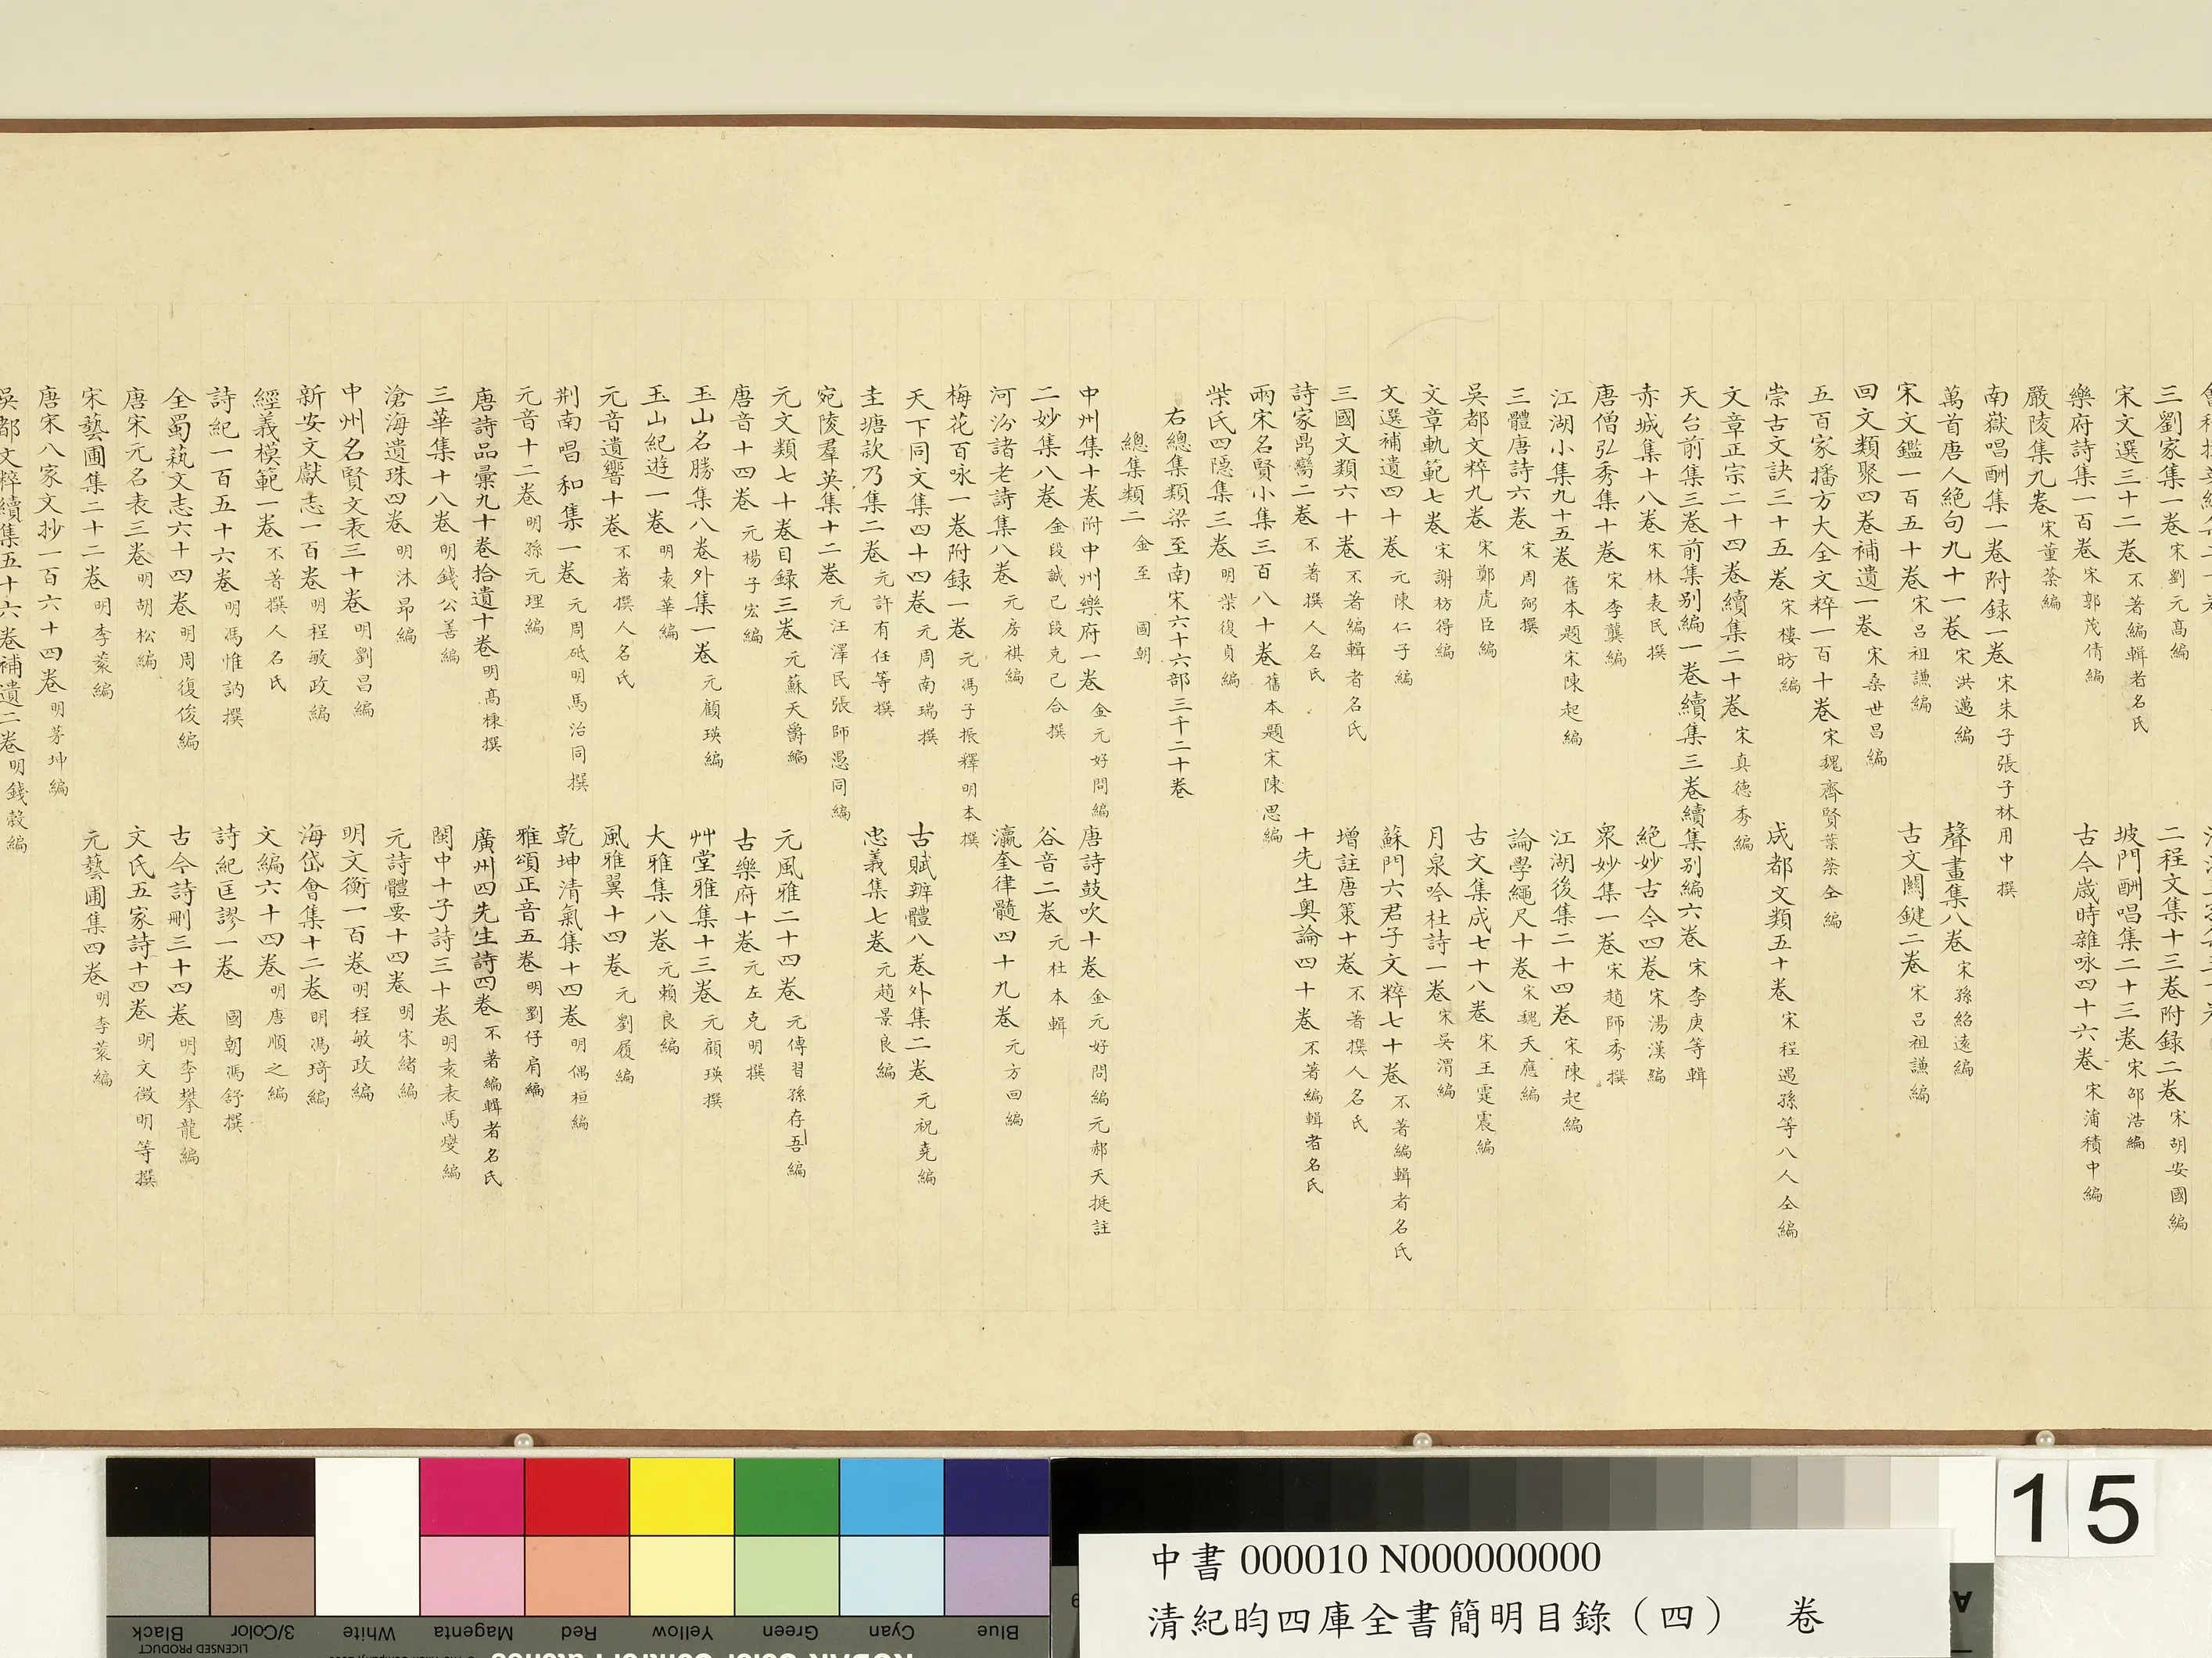 三劉家集一卷 宋劉元高編 二程文集十三卷附録二卷 宋胡安國編
宋文選三十二卷 不著編輯者名氏 坡門酬唱集二十三卷 宋邵浩編
樂府詩集一百卷 宋郭茂倩編 古今歲時雜咏四十六卷 宋蒲積中編
嚴陵集九卷 宋董棻編
南嶽唱酬集一卷附録一卷 宋朱子張子林用中撰
萬首唐人絕句九十一卷 宋洪邁編 聲畫集八卷 宋孫紹遠編
宋文鑑一百五十卷 宋呂祖謙編 古文關鍵二卷 宋呂祖謙編
回文類聚四卷補遺一卷 宋桑世昌編
五百家播方大全文粹一百十卷 宋魏齊賢葉棻仝編
崇古文訣三十五卷 宋樓昉編 成都文類五十卷 宋程遇孫等八人仝編
文章正宗二十四卷續集二十卷 宋真德秀編
天台前集三卷前集别編一卷續集三卷續集别編六卷 宋李庚等輯
赤城集十八卷 宋林表民撰 絕妙古今四卷 宋湯漢編
唐僧弘秀集十卷 宋李龏編 衆妙集一卷 宋趙師秀撰
江湖小集九十五卷 舊本題宋陳起編 江湖後集二十四卷 宋陳起編
三體唐詩六卷 宋周弼撰 論學繩尺十卷 宋魏天應編
吳都文粹九卷 宋鄭虎臣編 古文集成七十八卷 宋王霆震編
文章軌範七卷 宋謝枋得編 月泉吟社詩一卷 宋吳渭編
文選補遺四十卷 元陳仁子編 蘇門六君子文粹七十卷 不著編輯者名氏
三國文類六十卷 不著編輯者名氏 增註唐策十卷 不著撰人名氏
詩家鼎臠二卷 不著撰人名氏 十先生奧論四十卷 不著編輯者名氏
兩宋名賢小集三百八十卷 舊本題宋陳思編
柴氏四隱集三卷 明柴復貞編
右總集類梁至南宋六十六部三千二十卷
總集類二 金至國朝
中州集十卷附中州樂府一卷 金元好問編 唐詩鼓吹十卷 金元好問編元郝天挺註
二妙集八卷 金段誠已段克已合撰 谷音二卷 元杜本輯
河汾諸老詩集八卷 元房祺編 瀛奎律髓四十九卷 元方回編
梅花百咏一卷附録一卷 元馮子振釋明本撰
天下同文集四十四卷 元周南瑞撰 古賦辨體八卷外集二卷 元祝堯編
圭塘欸乃集二卷 元許有任等撰 忠義集七卷 元趙景良編
宛陵羣英集十二卷 元汪澤民張師愚同編
元文類七十卷目録三卷 元蘇天爵編 元風雅二十四卷 元傅習孫存吾編
唐音十四卷 元楊子宏編 古樂府十卷 元左克明撰
玉山名勝集八卷外集一卷 元顧瑛編 艸堂雅集十三卷 元顧瑛撰
玉山紀遊一卷 明袁華編 大雅集八卷 元賴良編
元音遺響十卷 不著撰人名氏 風雅翼十四卷 元劉履編
荆南唱和集一卷 元周砥明馬治同撰 乾坤清氣集十四卷 明偶桓編
元音十二卷 明孫元理編 雅頌正音五卷 明劉仔肩編
唐詩品彙九十卷拾遺十卷 明高棅撰 廣州四先生詩四卷 不著編輯者名氏
三華集十八卷 明錢公善編 閩中十子詩三十卷 明袁表馬熒編
滄海遺珠四卷 明沐昂編 元詩體要十四卷 明宋緒編
中州名賢文表三十卷 明劉昌編 明文衡一百卷 明程敏政編
新安文獻志一百卷 明程敏政編 海岱會集十二卷 明馮琦編
經義模範一卷 不著撰人名氏 文編六十四卷 明唐順之編
詩紀一百五十六卷 明馮惟訥撰 詩紀匡謬一卷 國朝馮舒撰
全蜀藝文志六十四卷 明周復俊編 古今詩刪三十四卷 明李攀龍編
唐宋元名表三卷 明胡松編 文氏五家詩十四卷 明文徵明等撰
宋藝圃集二十二卷 明李蓘編 元藝圃集四卷 明李蓘編
唐宋八家文抄一百六十四卷 明茅坤編
吳都文粹續集五十六卷補遺二卷 明錢穀編
15
中書 000010 N000000000
清紀昀四庫全書簡明目錄（四） 卷
Black 3/Color White Magenta Red Yellow Green Cyan Blue
LICENSED PRODUCT